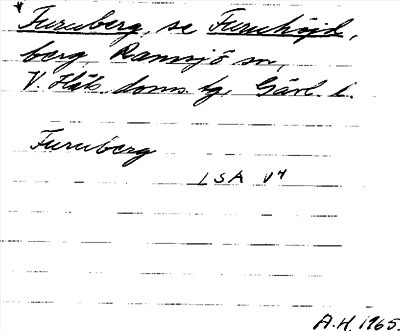 * Furuberg, se Furuhöjd,
berg, Ramsjö sn,
V. Häls. doms. tg. Gävl. l.
Furuberg
LSA V4
A.H. 1965.